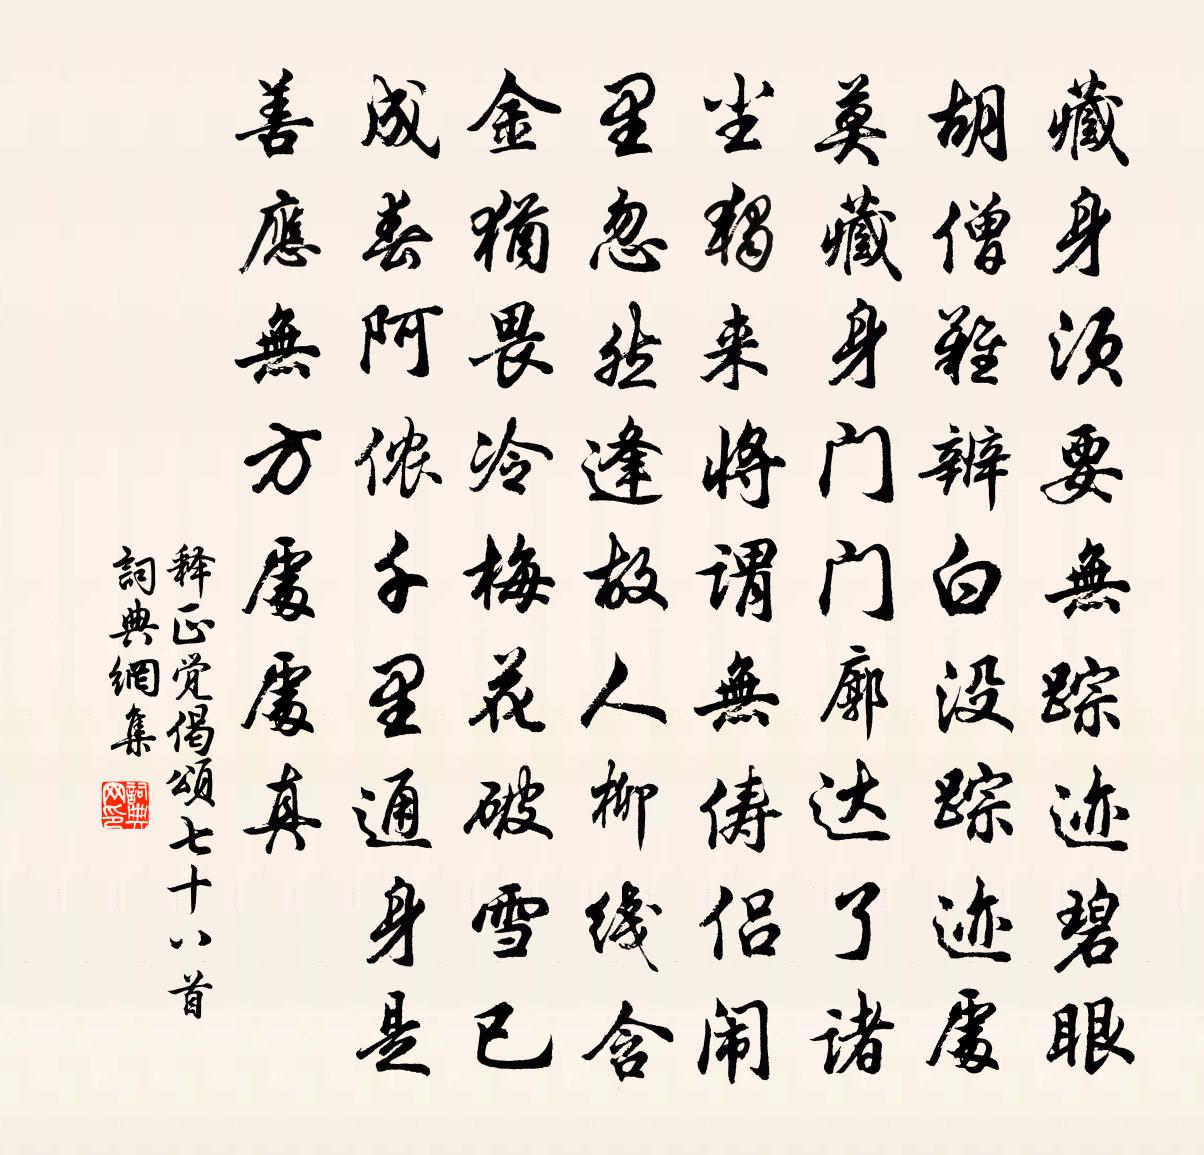 藏身须要無踪迹碧眼
胡僧難辨白没踪迹處
莫藏身门门廓达了诸
尘獨来将谓無俦侣闹
里忽然逢故人柳线含
金猶畏冷梅花破雪已
成春阿侬千里通身是
善應無方處處真
释正覚偈頌七十八首
詞典網集
詞典网印